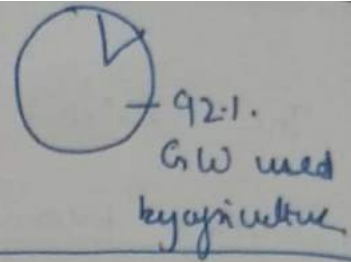 92%.
GW used
by agriculture